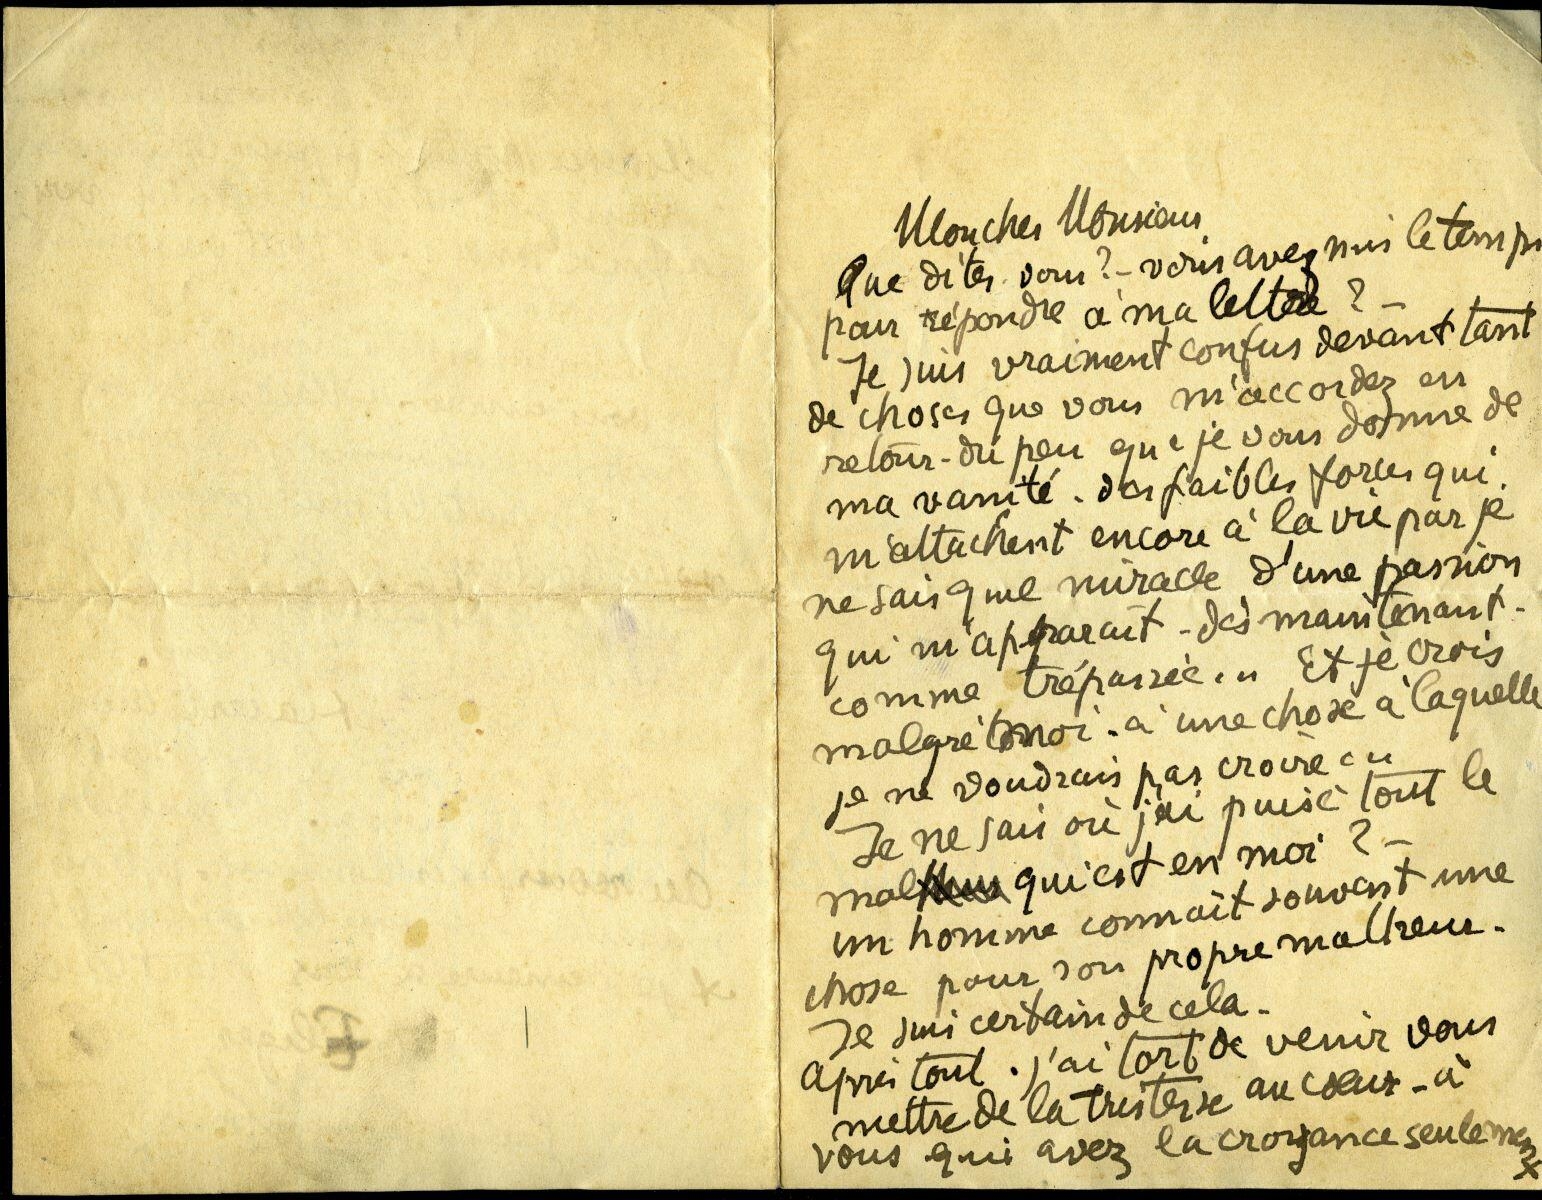 Mon cher Monsieur
Que dites vous ? - vous avez mis le temps
pour répondre à ma lettre ? -
Je suis vraiment confus devant tant
de choses que vous m'accordez en
retour - du peu que je vous donne de
ma vanité - des faibles forces qui
m'attachent encore à la vie par je
ne sais quel miracle d'une passion
qui m'apparait - dès maintenant -
comme trépassée... Et je crois
malgré moi - à une chose à laquelle
je ne voudrais pas croire...
Je ne sais où j'ai puisé tout le
mal qui est en moi ? -
un homme connaît souvent une
chose pour son propre malheur -
Je suis certain de cela -
Après tout - j'ai tort de venir vous
mettre de la tristesse au cœur - à
vous qui avez la croyance seulement